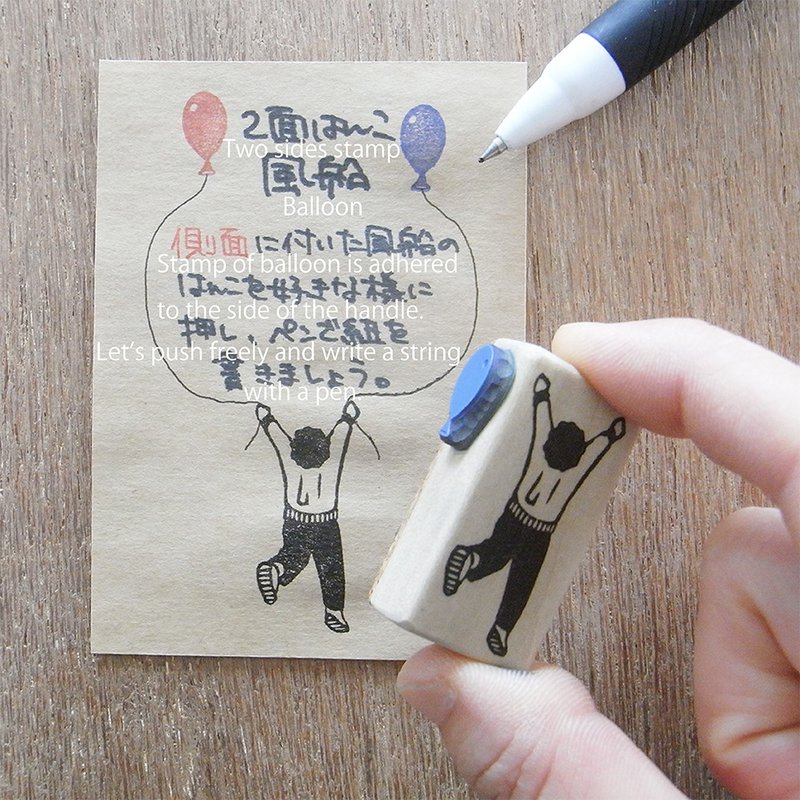 2面はんこ
Two sides stamp
風船
Balloon
側面に付いた風船の
Stamp of balloon is adhered
はんこを好きな様に
to the side of the handle.
押し、ペンで紐を
Let's push freely and write a string
書きましょう。
with a pen